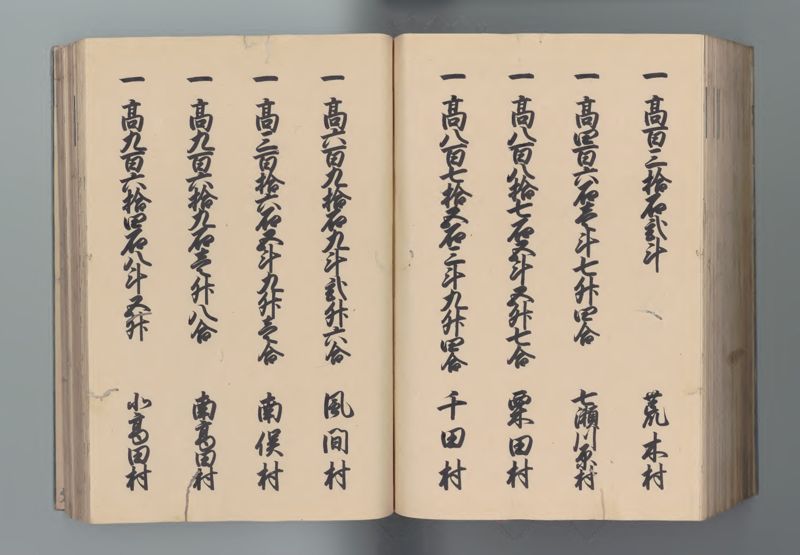 一 高百三拾石弐斗 荒木村
一 高四百六石壱斗七升四合 七瀬川原村
一 高八百八拾七石五斗五升七合 栗田村
一 高八百七拾五石三斗九升四合 千田村
一 高六百九拾石九斗弐升六合 風間村
一 高三百拾六石五斗九升壱合 南俣村
一 高九百六拾九石壱升八合 南高田村
一 高九百六拾四石八斗五升 北高田村